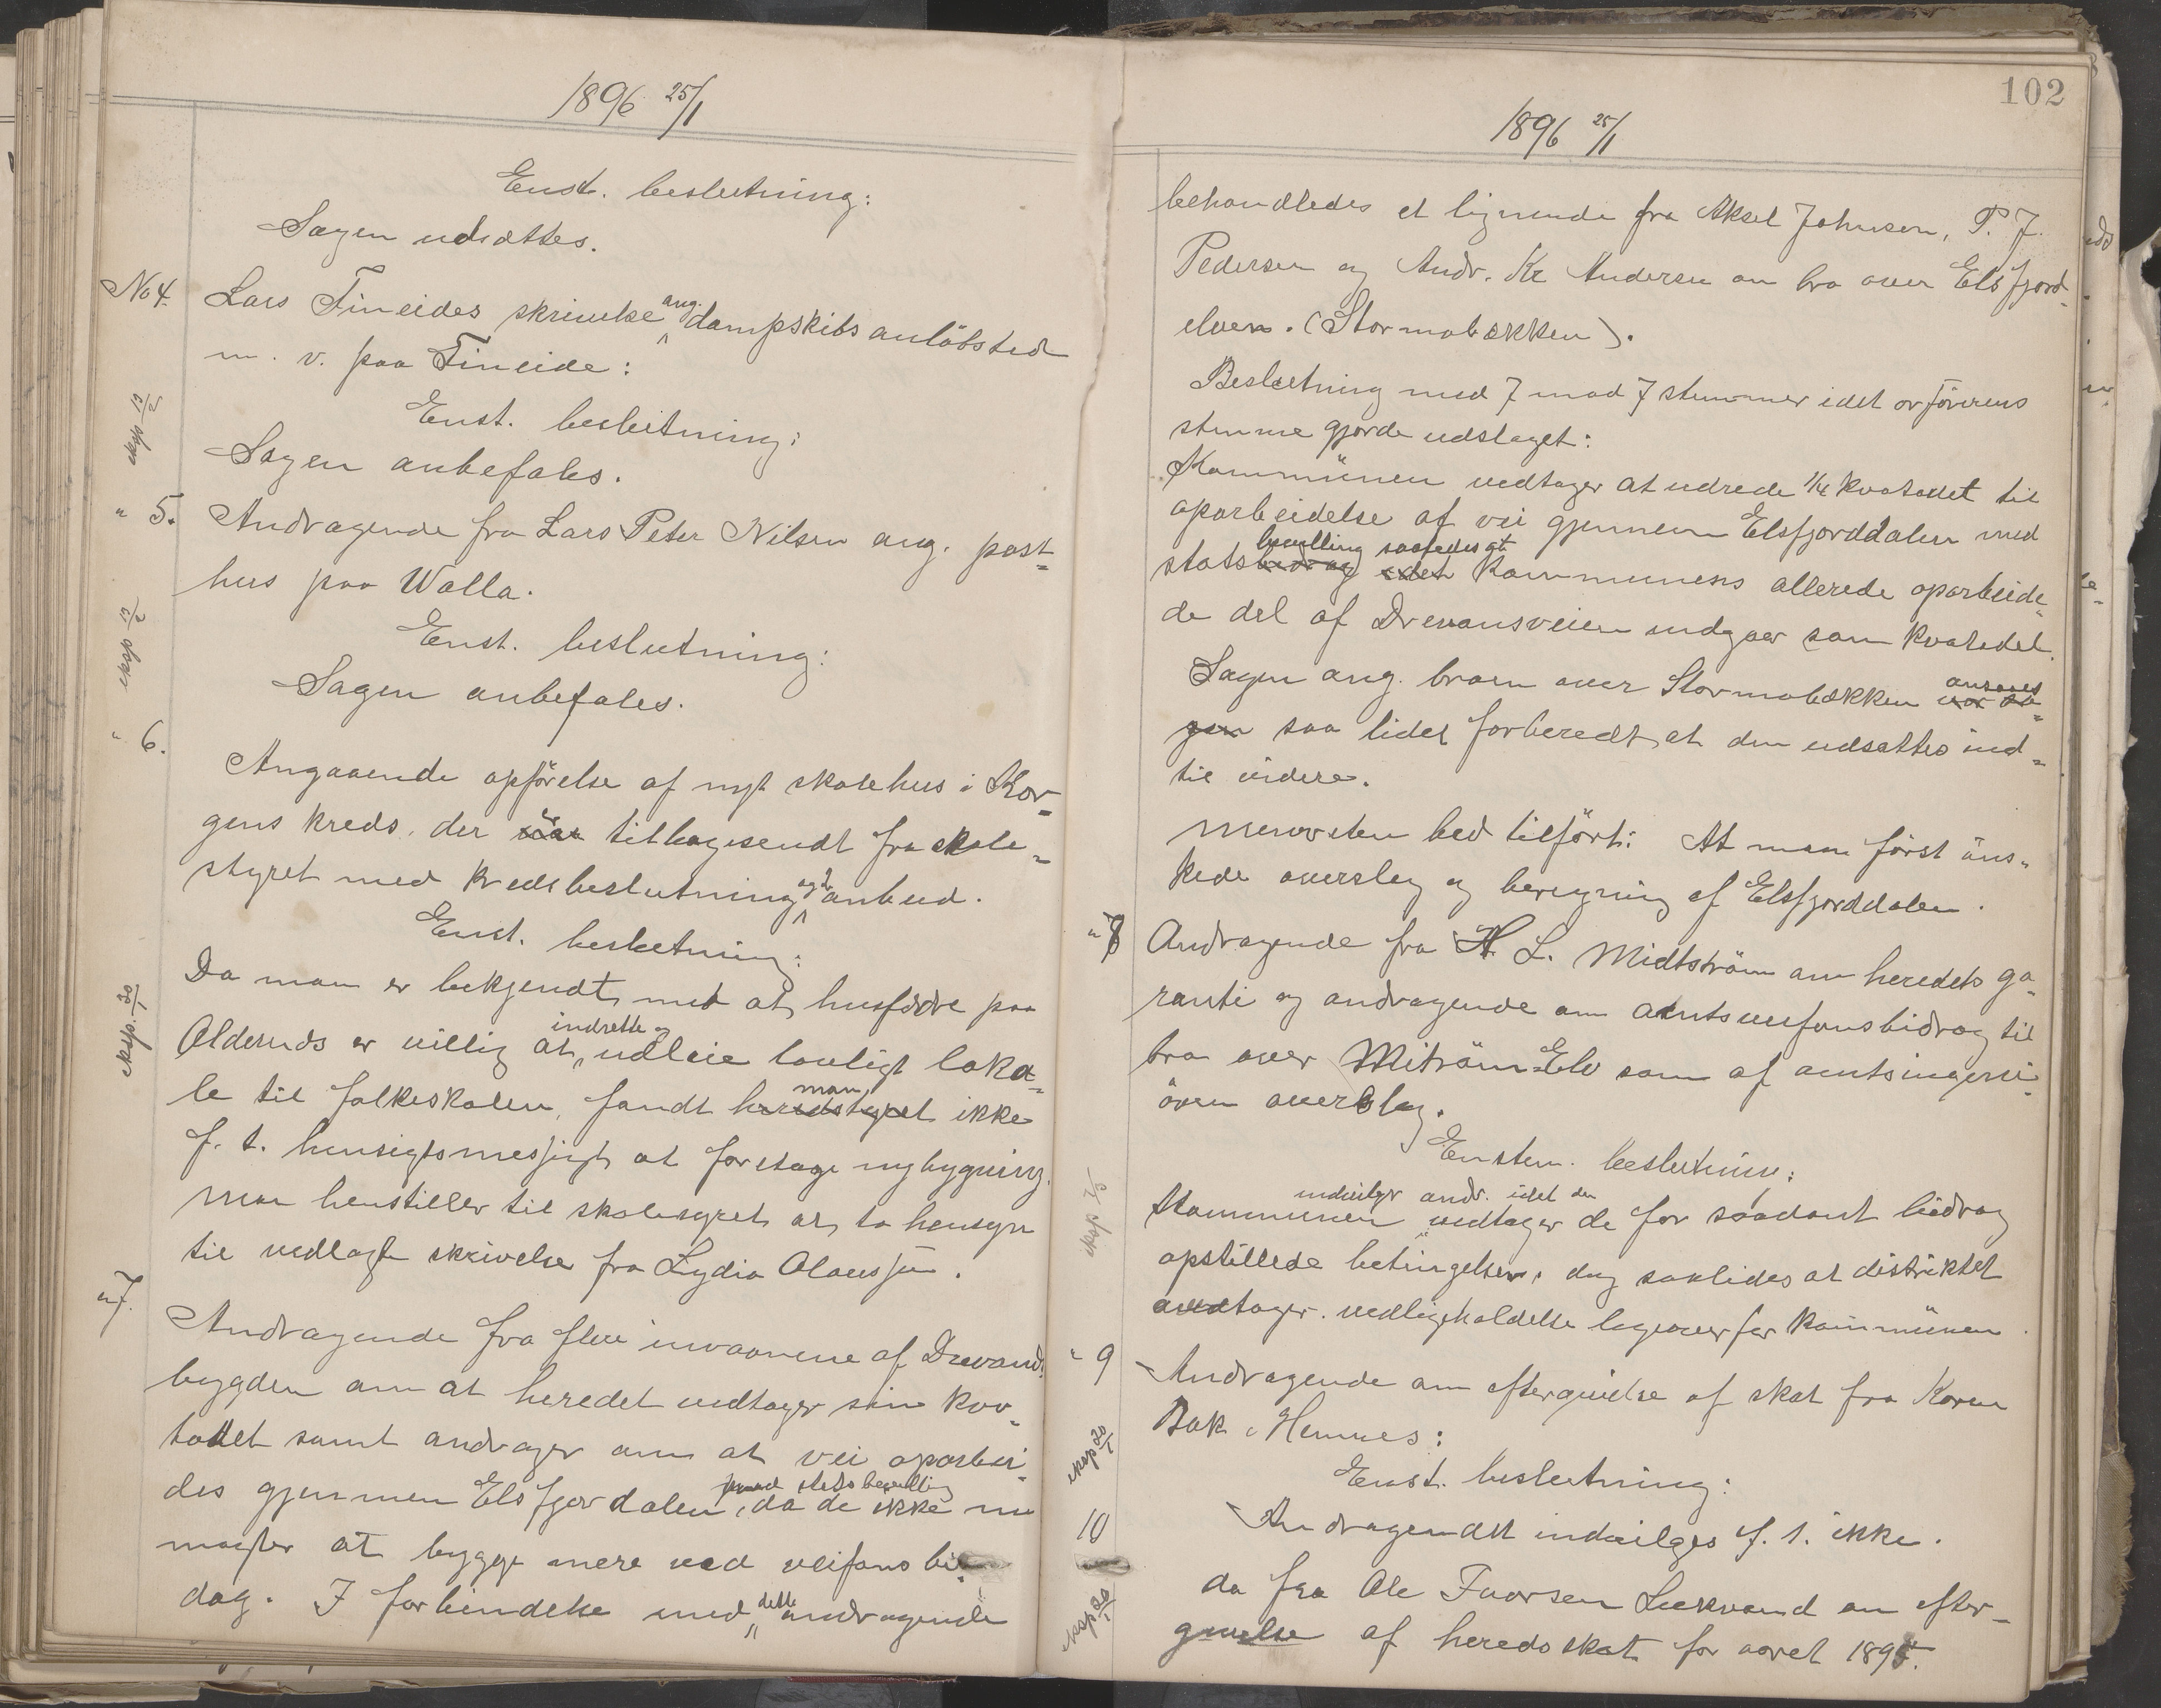 1896 25/1
Enst. beslutning:
Sagen udsættes.
No 4. Lars Fineides skrivelse ang. dampskibsanløbsted
m. v. paa Fineide:
Enst. beslutning:
eksp 13/2
Sagen anbefales.
" 5. Andragende fra Lars Peter Nilsen ang. post=
hus paa Walla.
Enst. beslutning:
eksp 13/2
Sagen anbefales.
" 6.
Angaaende opförelse af nyt skolehus i Kor=
gens kreds, der var tilbagesendt fra skole=
styret med kredsbeslutning og anbud.
Enst. beslutning:
Da man er bekjendt med at husfædre paa
eksp. 30/1
indrette og
Oldernes er villig at udleie lovligt loka=
man
le til folkeskolen, fandt heredstyret ikke
f. t. hensigtsmessigt at foretage nybygning.
Man henstiller til skolestyret at ta hensyn
til vedlagte skrivelse fra Lydia Olaussen.
" 7.
Andragende fra flere invaanere af Drevands
bygden om at heredet vedtager sin kvo=
tadel samt andrager om at vei oparbei=
med statsbevilling
des gjennem Elsfjordalen, da de ikke nu
magter at bygge mere ved veifonsbi=
dag. I forbindelse med dette andragende
102
1896 25/1
behandledes et lignende fra Aksel Johnsen, P. J.
Pedersen og Andr. Kr Andersen om bro over Elsfjord=
elven. (Stormobækken).
Beslutning med 7 mod 7 stemmer idet ordförerens
stemme gjorde udslaget:
Kommünen vedtager at udrede 1/4 kvotadet til
oparbeidelse af vei gjennem Elsfjorddalen med
bevilling saaledes at
statsbidrag idet kommunens allerede oparbeide=
de del af Drevansveien indgaar som kvotedel.
Sagen ang. broen over Stormobækken ansaaes
var sa=
gen saa lidet forberedt at den udsættes ind=
til videre.
Menosten bed tilfört: At man först öns=
kede overslag og beregning af Elsfjorddalen.
" 8 Andragende fra H. L. Midtström om heredets ga=
ranti og andragende om amtsveifonsbidrag til
bro over Miström Elv som af amtsingeni=
ören overslag.
Enstem. beslutning:
eksp 7/3
indvilger andr. idet den
Kommunen vedtager de for saadant bidrag
opstillede betingelser, dog saaledes at distriktet
overtager vedligeholdelse ligeover for kommünen.
" 9 Andragende om eftergivelse af skat fra Karen
Bak, Hemnes:
eksp 30/1
Enst. beslutning:
Andragendet indvilges f. t. ikke.
10
do fra Ole Ivarsen Lekvand om efter=
eksp 30/1
givelse af heredsskat for aaret 1895.